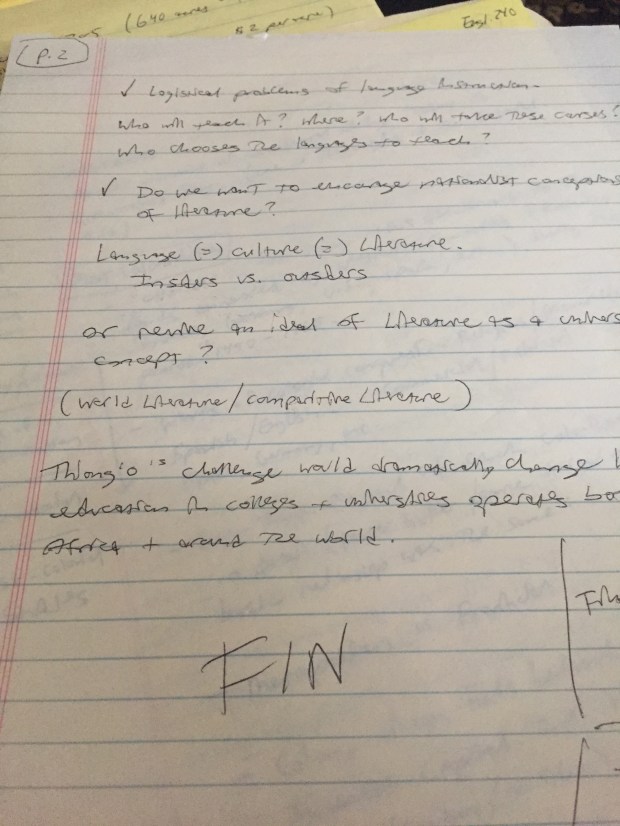 (640
$2 per
Engl. 240
P. 2
✓ Logistical problems of language instruction -
who will teach it? where? who will take these courses?
who chooses the languages to teach?
✓ Do we want to encourage nationalist conceptions
of literature?
Language (=) culture (=) Literature.
Insiders vs. outsiders
or revive an ideal of Literature as a univers
concept?
(World Literature/comparitive Literature)
Thiong'o's challenge would dramatically change
education in colleges + universities operates bo
Africa + around the world.
FIN